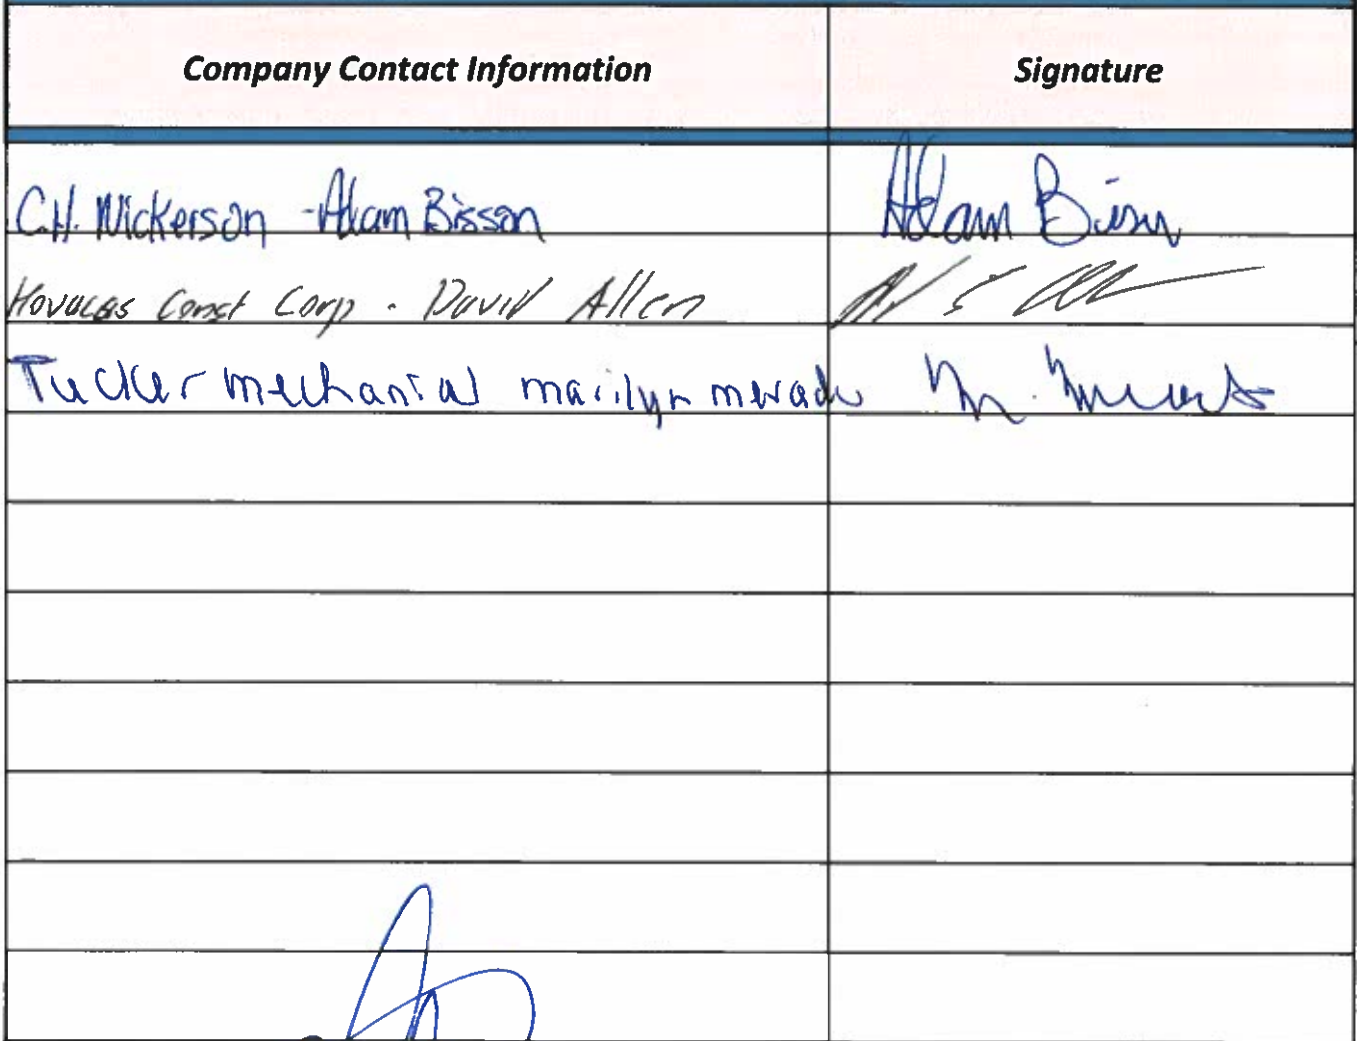 Company Contact Information Signature
C.H. Nickerson - Adam Bisson Adam Bisson
Const Corp - David Allen
Tucker mechanical marilyn